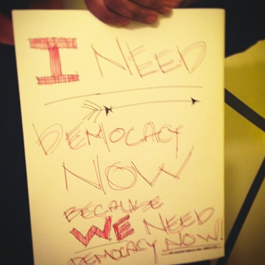 I NEED
DEMOCRACY
NOW
BECAUSE
WE NEED
DEMOCRACY NOW!